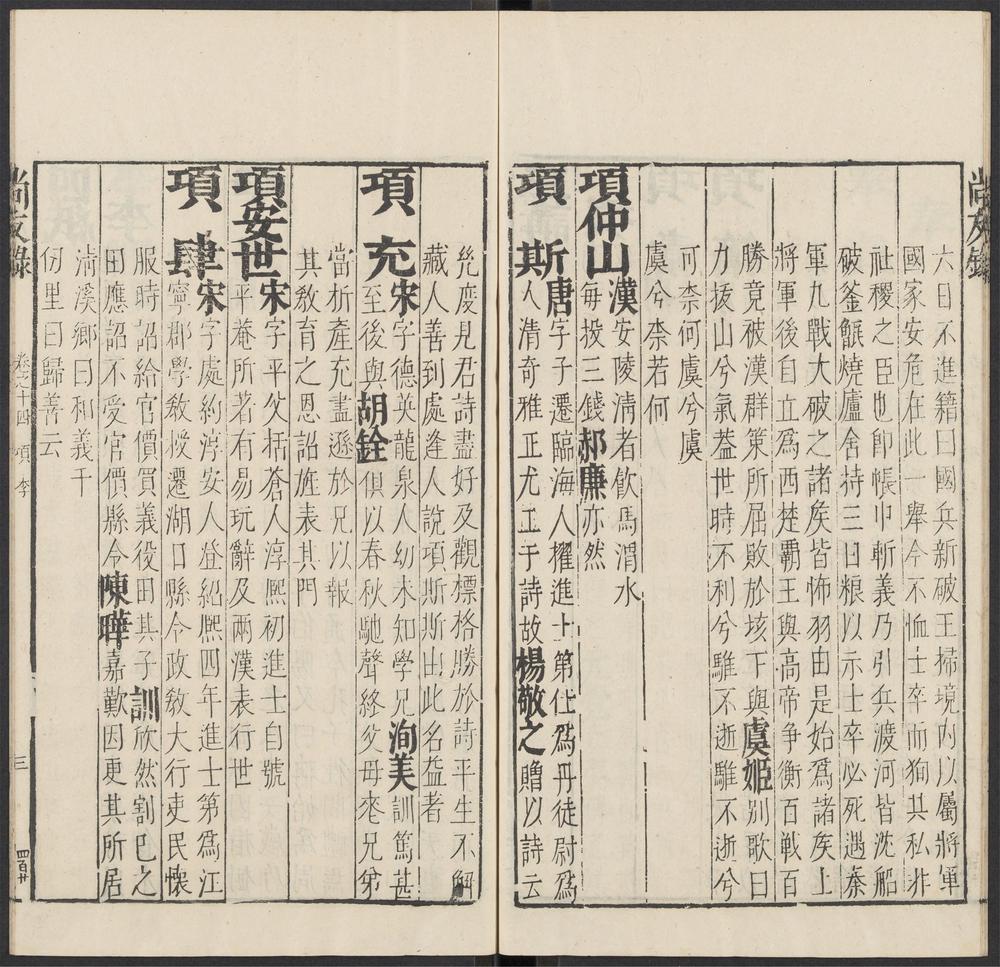 尚友錄
六日不進籍曰國兵新破王掃境内以屬將軍
國家安危在此一舉今不恤士卒而狥其私非
社稷之臣也卽帳中斬義乃引兵渡河皆沈船
破釜甑燒廬舍持三日粮以示士卒必死遇秦
軍九戰大破之諸矦皆怖羽由是始爲諸矦上
將軍後自立爲西楚霸王與高帝争衡百戦百
勝竟破漢群策所屈敗於垓下與虞姬别歌曰
力拔山兮氣葢世時不利兮騅不逝騅不逝兮
可柰何虞兮虞
虞兮柰若何
項仲山漢安陵清者飲馬渭水
每投三錢郝廉亦然
項斯唐字子遷臨海人擢進士第仕爲丹徒尉爲
人清奇雅正尤工于詩故楊敬之贈以詩云
幾度見君詩盡好及觀標格勝於詩平生不解
藏人善到處逢人說項斯斯出此名益著
項充宋字德英龍泉人幼未知學兄洵美訓篤甚
至後與胡銓俱以春秋馳聲終父母喪兄弟
當析產充盡遜於兄以報
其教育之恩詔旌表其門
項安世宋字平父括蒼人淳熙初進士自號
平菴所著有易玩辭及兩漢表行世
項肆宋字處約淳安人登紹熙四年進士第爲江
寧郡學教授遷湖口縣令政教大行吏民懷
服時詔給官價買義役田其子訓欣然割已之
田應詔不受官價縣令陳曄嘉歎因更其所居
清溪鄉曰和義千
份里曰歸善云
尚友錄
卷之十四 項 李
三
四百廿